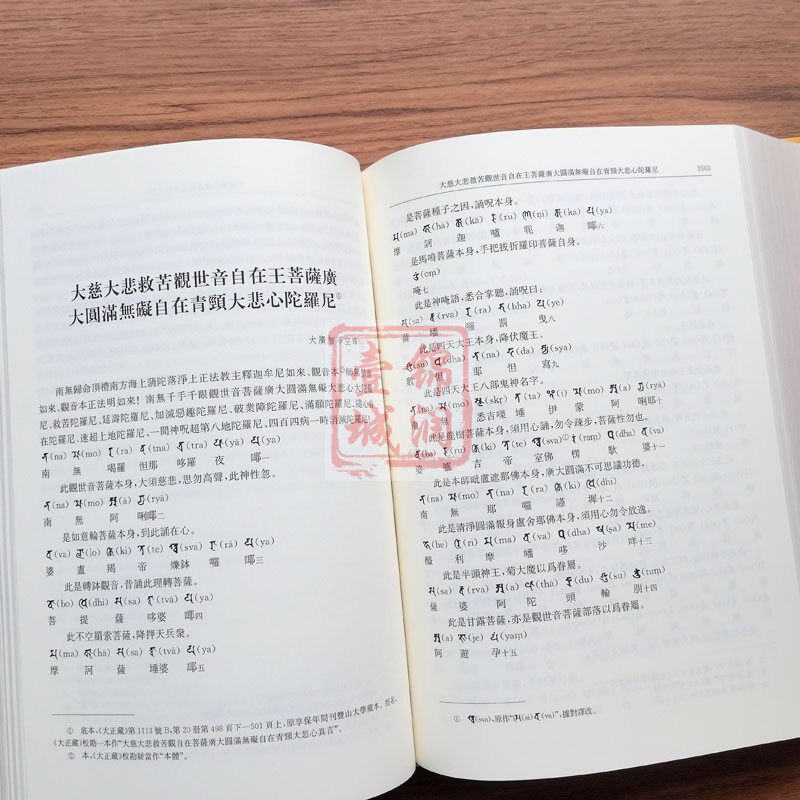 大慈大悲救苦觀世音自在王菩薩廣
大圓滿無礙自在青頸大悲心陀羅尼①
南無歸命頂禮南方海上蒲陀落淨土正法教主釋迦牟尼如來、觀音本
如來、觀音本正法明如來！南無千手千眼觀世音菩薩廣大圓滿無礙大悲心大
尼、救苦陀羅尼、延壽陀羅尼、加滅惡趣陀羅尼、破業障陀羅尼、滿願陀羅尼、
在陀羅尼、速超上地陀羅尼、一聞神呪超第八地陀羅尼、四百四病一時消滅陀羅尼
(na) (mo) (ra) (tna) (tra) (yā) (ya)
南 無 喝羅 怛那 哆羅 夜 㖿一
此觀世音菩薩本身，大須慈悲，思勿高聲，此神性忽。
(na) (mo) (ā) (ryā)
南 無 阿 唎㖿二
是如意輪菩薩本身，到此誦在心。
(va) (lo) (ki) (te) (sva) (rā) (ya)
婆 盧 羯 帝 爍鉢 囉 㖿三
此是轉鉢觀音，昔誦此理轉菩薩。
(bo) (dhi) (sa) (tvā) (ya)
菩 提 薩 哆婆 㖿四
此不空羂索菩薩，降押天兵衆。
(ma) (hā) (sa) (tvā) (ya)
摩 訶 薩 埵婆 㖿五
① 底本，《大正藏》第1113號B，第20册第498頁下—501頁上，原享保年間刊豐山大學藏本。
《大正藏》校勘一本作“大慈大悲救苦觀自在菩薩廣大圓滿無礙自在青頸大悲心真言”。
② 本，《大正藏》校勘疑當作“本體”。
大慈大悲救苦觀世音自在王菩薩廣大圓滿無礙自在青頸大悲心陀羅尼 1503
是菩薩種子之因，誦呪本身。
(ma) (hā) (kā) (ru) (ṇi) (kā) (ya)
摩 訶 迦 嚧 昵 迦 㖿六
是馬鳴菩薩本身，手把拔折羅印菩薩自身。
(oṃ)
唵七
此是神唵語，悉合掌聽，誦呪曰：
(sa) (rva) (ra) (bha) (ye)
薩 皤 囉 罰 曳八
此是四天大王本身，降伏魔王。
(dha) (na) (da) (sya)
怛 那 怛 寫九
此是四天大王八部鬼神名字。
(na) (mo) (skṛ) (ta) (i) (mo) (a) (rya)
南 無 悉吉㗚 埵 伊 蒙 阿 唎㖿十
此是龍樹菩薩本身，須用心誦，勿令疎步，菩薩性勿也。
吉 帝 室佛 楞 馱 婆十一
此是本師毗盧遮那佛本身，廣大圓滿不可思議功德。
(na) (mo) (na) (ra) (ki) (dhi)
南 無 那 囉 謹 墀十二
此是清淨圓滿報身盧舍那佛本身，須用心勿令放逸。
(he) (ri) (ma) (va) (dha) (ṣa) (me)
醯 利 摩 皤 哆 沙 咩十三
此是半頭神王，菊大魔以爲眷屬。
薩 婆 阿 陀 頭 輸 朋十四
此是甘露菩薩，亦是觀世音菩薩部落以爲眷屬。
(a) (je) (yaṃ)
阿 遊 孕十五
① (śva)，原作“(si) (va)”，據對譯改。